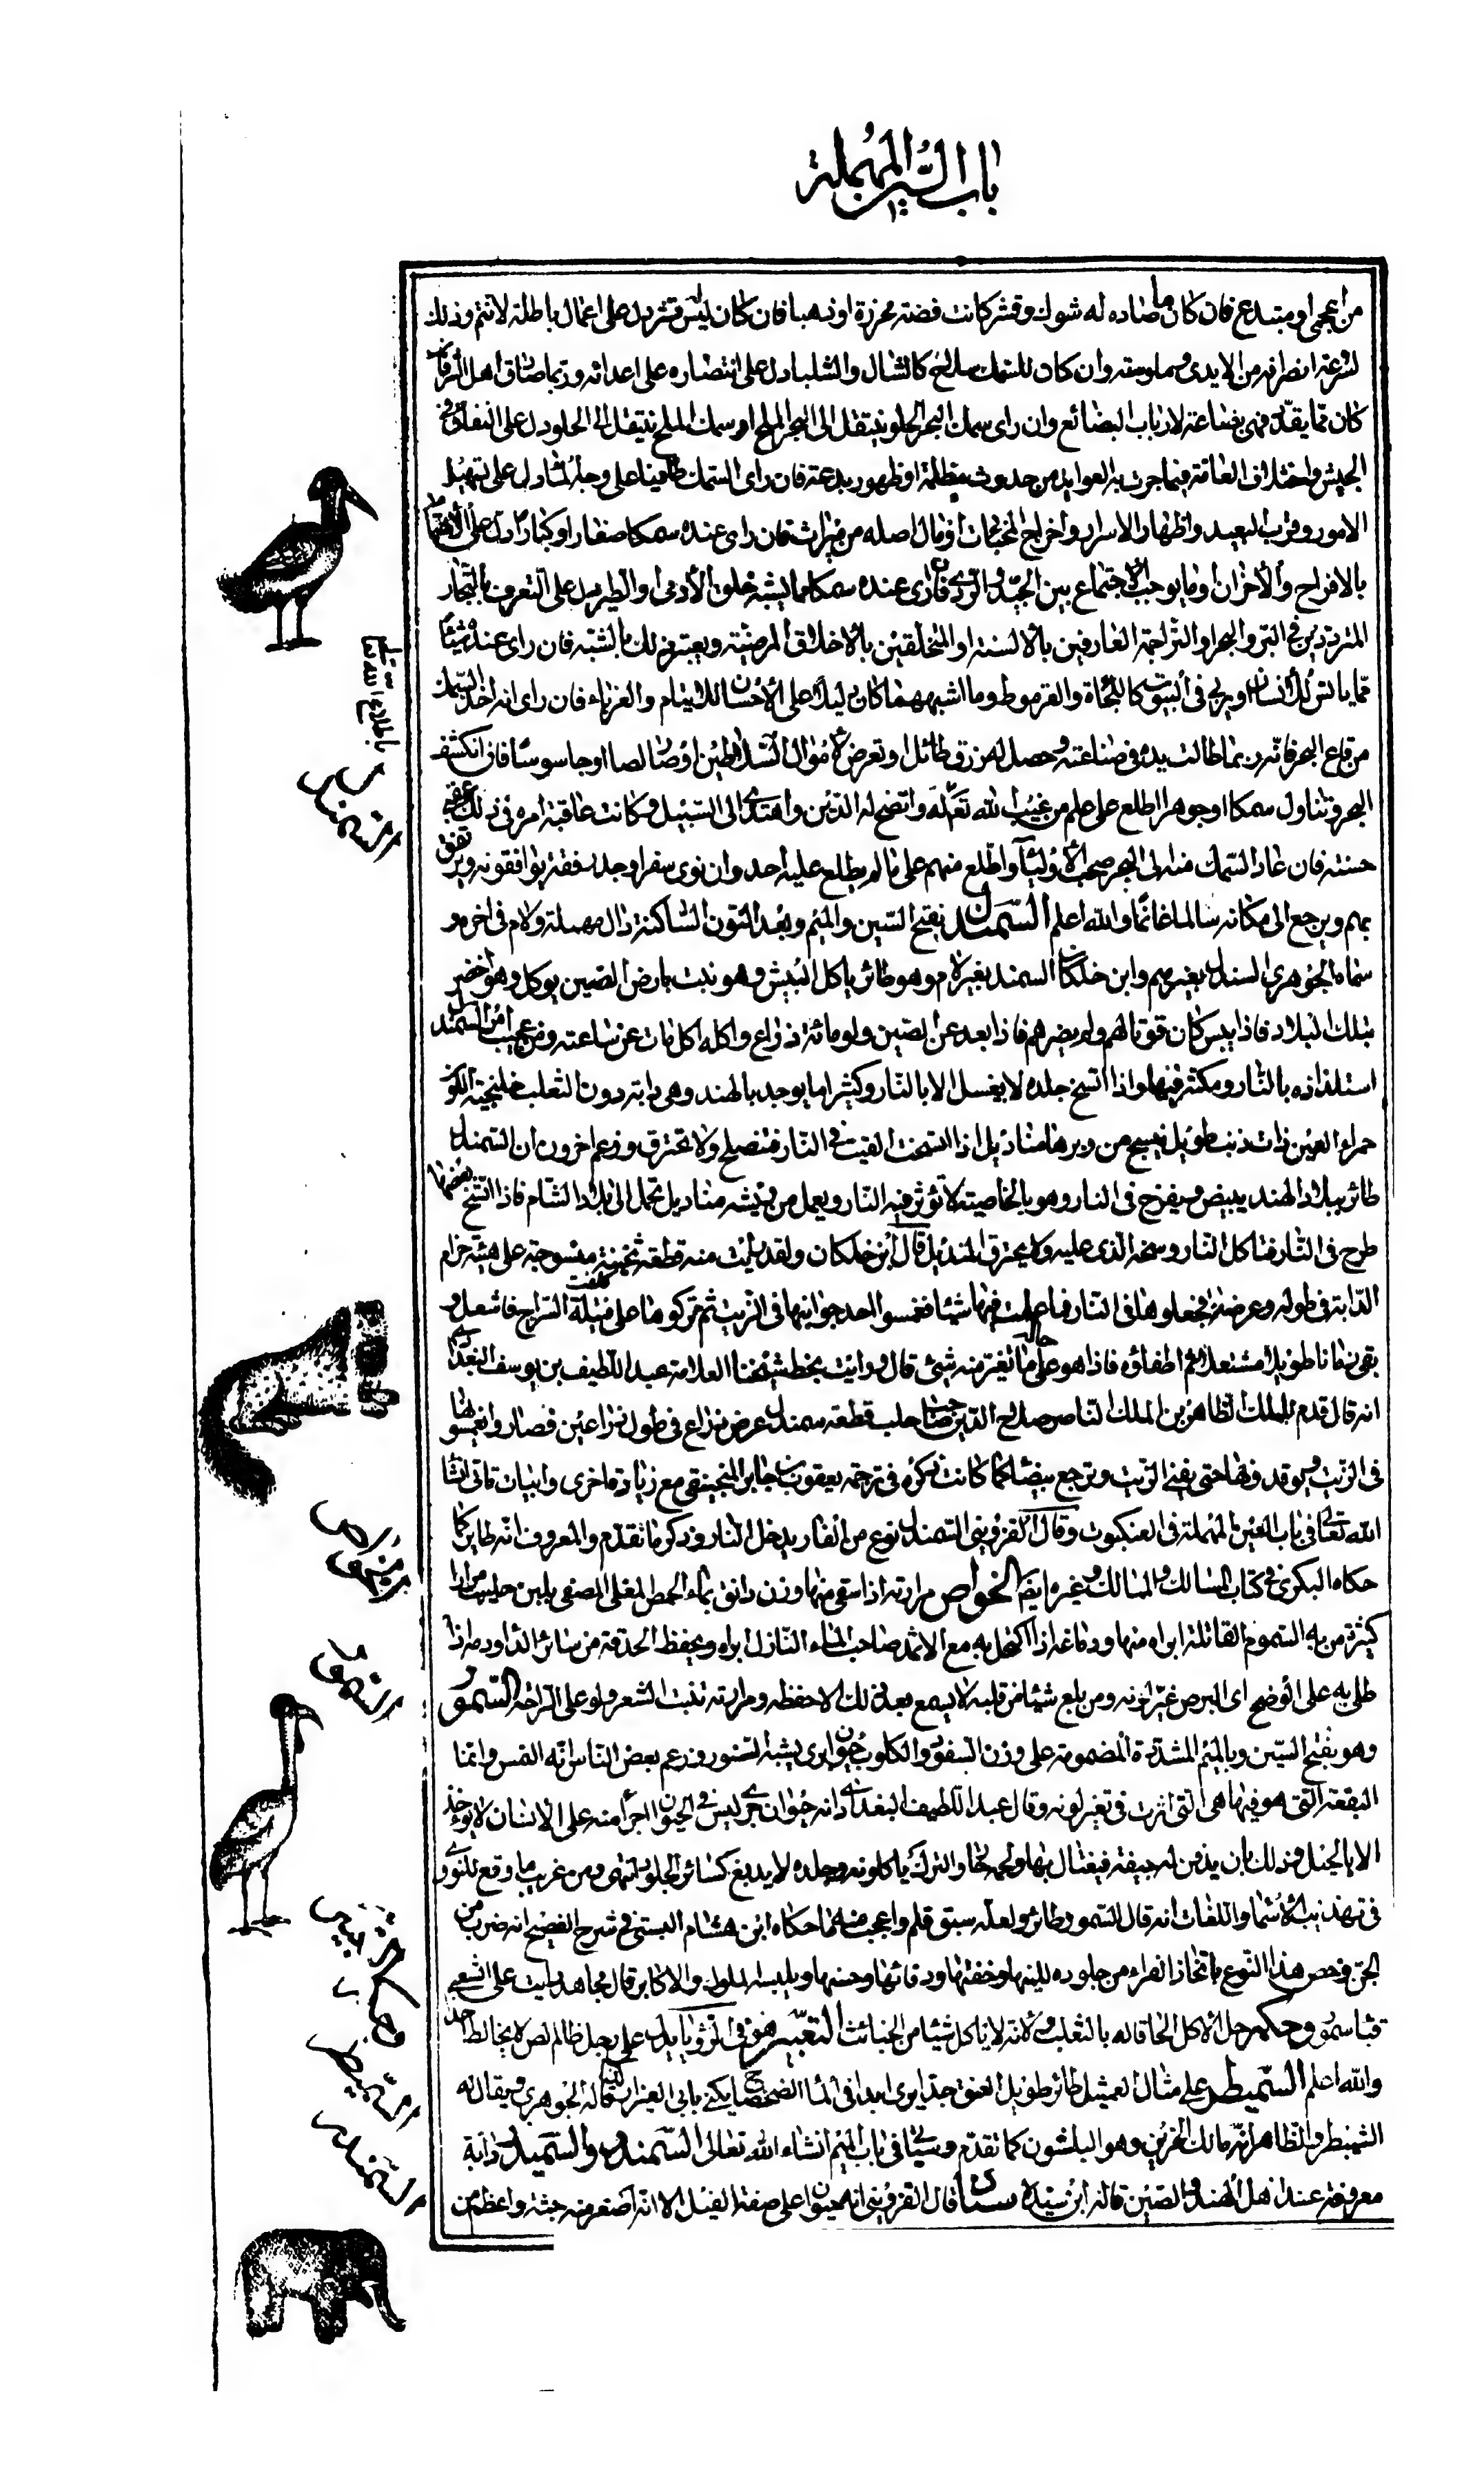 باب السين المهملة
من اعجمى او مبتدع فان كان ما صاده له شوك وقشر كانت فضة محرزة او ذهبا فان كان ليس قشر دل على اعمال باطلة لا تتم وذلك
لسرعة انصرافه من الايدى وملوسته وان كان للسمك سلاح كالشال والشلبا دل على انتصاره على اعدائه وربما صادق اهل الشر فان
كان مما يقدد فهى بضاعة لارباب البضائع وان راى سمك البحر الحلو ينتقل الى البحر المالح او سمك المالح ينتقل الى الحلو دل على النفاق فى
الجيش واختلاف العامة فيما جرت به العوايد من حدوث مظلمة او ظهور بدعة فان راى السمك طافيا على وجه الماء دل على تسهيل
الامور وقرب البعيد واظهار الاسرار واخراج المخبئات او مال اصله من ميراث فان راى عنده سمكا صغارا او كبارا دل على الاهتمام
بالافراح والأحزان وما يوجب الاجتماع بين الجيد والردى فان راى عنده سمكا مما يشبه خلق الأدمى او الطير دل على التعرف بالتجار
المترددين فى البر والبحر او التراجمة العارفين بالألسنة او المتخلقين بالأخلاق المرضية ويعتبر ذلك بالشبه فان راى عنده شيئا
مما يانس للانسان او يربى فى البيوت كاللجاة والقرموط وما اشبههما كان دليلا على الأحسان للايتام والغرباء فان راى انه اخذ السمك
من قاع البحر فانه ربما طالت يده فى صناعته وحصل له رزق طائل او تعرض لأموال السلاطين او صار لصا او جاسوسا فان انكشف
البحر وتناول سمكا او جوهرا اطلع على علم من غيب الله تعالى له واتضح له الدين واهتدى الى السبيل وكانت عاقبة امره فى ذلك عقبى
حسنة فان عاد السمك منه الى البحر صحب الأولياء واطلع منهم على ما لم يطلع عليه احد وان نوى سفرا وجد رفقة يوافقونه ويرتفق
بهم ويرجع الى مكانه سالما غانما والله اعلم السمندل بفتح السين والميم وبعد النون الساكنة دال مهملة ولام فى اخره و
سماه الجوهرى السندل بغير ميم وابن خلكان السمند بغير لام وهو طائر ياكل البيش وهو نبت بارض الصين يوكل وهو اخضر
بتلك البلاد فاذا يبس كان قوتا لهم ولم يضرهم فاذا بعد عن الصين ولو مائة ذراع واكله اكل مات عن ساعته ومن عجيب امر السمندل
استلذاذه بالنار ومكثه فيها واذا اتسخ جلده لا يغسل الا بالنار وكثيرا ما يوجد بالهند وهى دابة دون الثعلب خلنجية اللون
حمراء العين ذات ذنب طويل ينسج من وبرها مناديل اذا اتسخت القيت فى النار فتنصلح ولا تحترق وزعم اخرون ان السمندل
طائر ببلاد الهند يبيض ويفرخ فى النار وهو بالخاصية لا تؤثر فيه النار ويعمل من ريشه مناديل تحمل الى بلاد الشام فاذا اتسخ بعضها
طرح فى النار فتاكل النار وسخه الذى عليه ولا يحترق المنديل قال ابن خلكان ولقد رايت منه قطعة ثخينة منسوجة على هيئة حزام
الدابة فى طوله وعرضه فجعلوها فى النار فما عملت فيها شيئا فغمسوا احد جوانبها فى الزيت ثم تركوها على فتيلة السراج فاشتعل و
بقى زمانا طويلا مشتعلا ثم اطفاؤه فاذا هو على حاله ما تغير منه شئ قال ورايت بخط شيخنا العلامة عبد اللطيف بن يوسف البغدادى
انه قال قدم للملك الظاهر بن الملك الناصر صلاح الدين صاحب حلب قطعة سمندل عرض ذراع فى طول ذراعين فصاروا يغمسونها
فى الزيت ويوقد فيها حتى يفنى الزيت وترجع بيضاء كما كانت ذكره فى ترجمة يعقوب بن جابر المنجنيقى مع زيادة اخرى وابيات تاتى انشا
الله تعالى فى باب العين المهملة فى العنكبوت وقال القزوينى السمندل نوع من الفار يدخل النار وذكر ما تقدم والمعروف انه طاير كما
حكاه البكرى فى كتاب المسالك والممالك وغيره ايضا الخواص مرارته اذا سقى منها وزن دانق بماء الحمص المغلى المصفى بلبن حليب مرارا
كثيرة من به السموم القاتلة ابراه منها ودماغه اذا اكتحل به مع الاثمد صاحب الماء النازل ابراه ويحفظ الحدقة من سائر الداء ودمه اذا
طلى به على الوضح اى البرص غير لونه ومن بلع شيئا من قلبه لا يسمع بعد ذلك الا حفظه ومرارته تنبت الشعر ولو على الراحة السمور
وهو بفتح السين وبالميم المشددة المضمومة على وزن السفود والكلوب حيوان برى يشبه السنور وزعم بعض الناس انه النمس وانما
البقعة التى هو فيها هى التى اثرت فى تغير لونه وقال عبد اللطيف البغدادى انه حيوان جرى ليس فى الحيوان اجرأ منه على الأنسان لا يوخذ
الا بالحيل وذلك بان يدفن له جيفة فيغتال بها ولحمه حار والترك ياكلونه وجلده لا يدبغ كسائر الجلود انتهى ومن غريب ما وقع للنووى
فى تهذيب الأسماء واللغات انه قال السمور طائر ولعله سبق قلم واعجب منه ما حكاه ابن هشام البستى فى شرح الفصيح انه ضرب من
الجن وخص هذا النوع باتخاذ الفراء من جلوده للينها وخفتها ودفائها وحسنها ويلبسه الملوك والاكابر قال مجاهد رايت على الشعبى
قباء سمور وحكمه حل الأكل الحاقا له بالثعلب ولأنه لا ياكل شيئا من الخبائث التعبير هو فى الرؤيا يدل على رجل ظالم لص لا يخالط احدا
والله اعلم السميطر على مثال العميثل طائر طويل العنق جدا يرى ابدا فى الماء الضحضاح يكنى بابى العيزار قاله الجوهرى ويقال له
الشميطر والظاهر انه مالك الحزين وهو البلشون كما تقدم وسياتى فى باب الميم انشاء الله تعالى السمندر والسميدر دابة
معروفة عند اهل الهند والصين قاله ابن سيده سناد قال القزوينى انه حيوان على صفة الفيل الا انه اصغر منه جثة واعظم من
باطلاع الله تعالى
السمندل
الخواص
السمور
التعبير
وحكمه
السميطر
السمندر